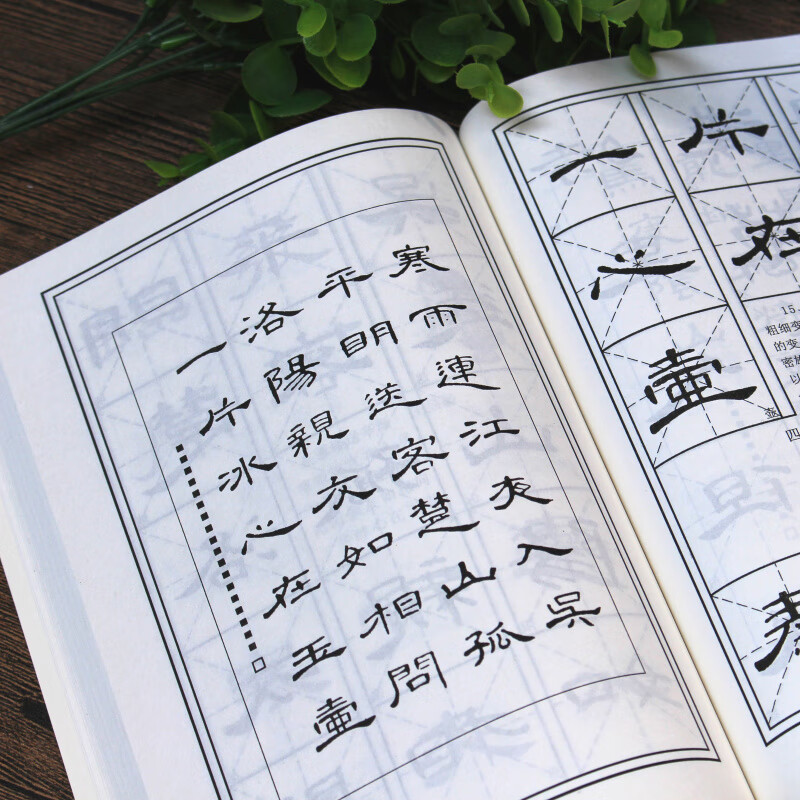 寒雨連江夜入吳
平明送客楚山孤
洛陽親友如相問
一片冰心在玉壺
一片
心在
壺
15.
粗细变
的变
以
四